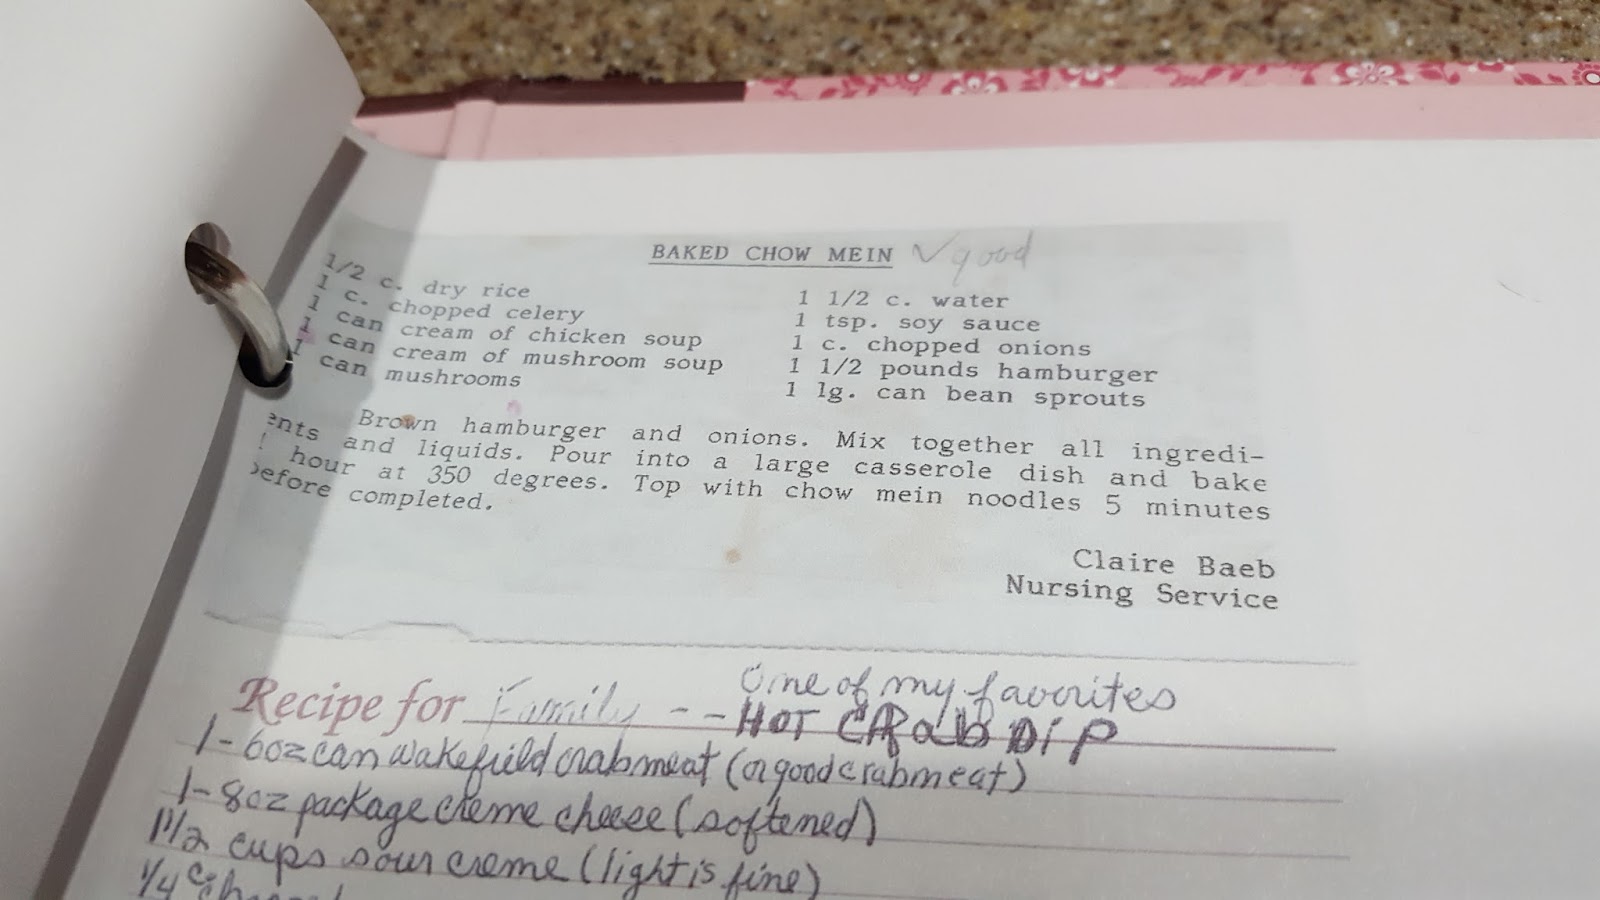 BAKED CHOW MEIN ✓ good
1/2 c. dry rice
1 c. chopped celery
1 can cream of chicken soup
1 can cream of mushroom soup
1 can mushrooms
1 1/2 c. water
1 tsp. soy sauce
1 c. chopped onions
1 1/2 pounds hamburger
1 lg. can bean sprouts
Brown hamburger and onions. Mix together all ingredi-
ents and liquids. Pour into a large casserole dish and bake
hour at 350 degrees. Top with chow mein noodles 5 minutes
before completed.
Claire Baeb
Nursing Service
One of my favorites
Recipe for Family -- HOT CRab DiP
1-6oz can wakefield crabmeat (or good crabmeat)
1-8oz package creme cheese (softened)
1 1/2 cups sour creme (light is fine)
1/4 c.